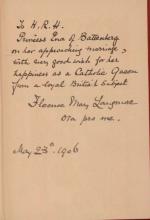 To H.R.H.
Princess Ena of Battenberg
on her approaching marriage,
with very good wish for her
happiness as a Catholic Queen
from a loyal British subject
Florence Mary
Ora pro me.
May 23rd. 1906